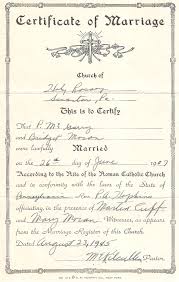 Certificate of Marriage
Church of
Holy Rosary
Scranton, Pa.
This is to Certify
That P. Mc Garry
and Bridget Moran
were lawfully
Married
on the 26th day of June 1907
According to the Rite of the Roman Catholic Church
and in conformity with the laws of the State of
Pennsylvania Rev. P.A. Hopkins
officiating, in the presence of Martin Cuff
and Mary Moran Witnesses, as appears
from the Marriage Register of this Church.
Dated August 22, 1945
Pastor